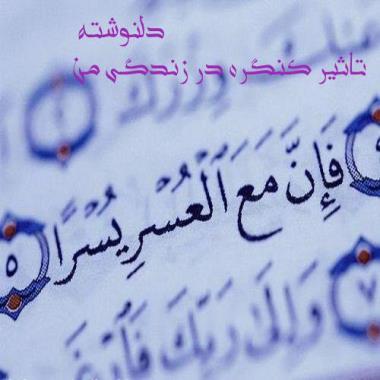 دلنوشته
تاثیر کنگره در زندگی من
عنك وزرك
فَإِنَّ مَعَ ٱلْعُسْرِ يُسْرًا ٥
وَإِلَىٰ رَبِّكَ فَٱرْغَب